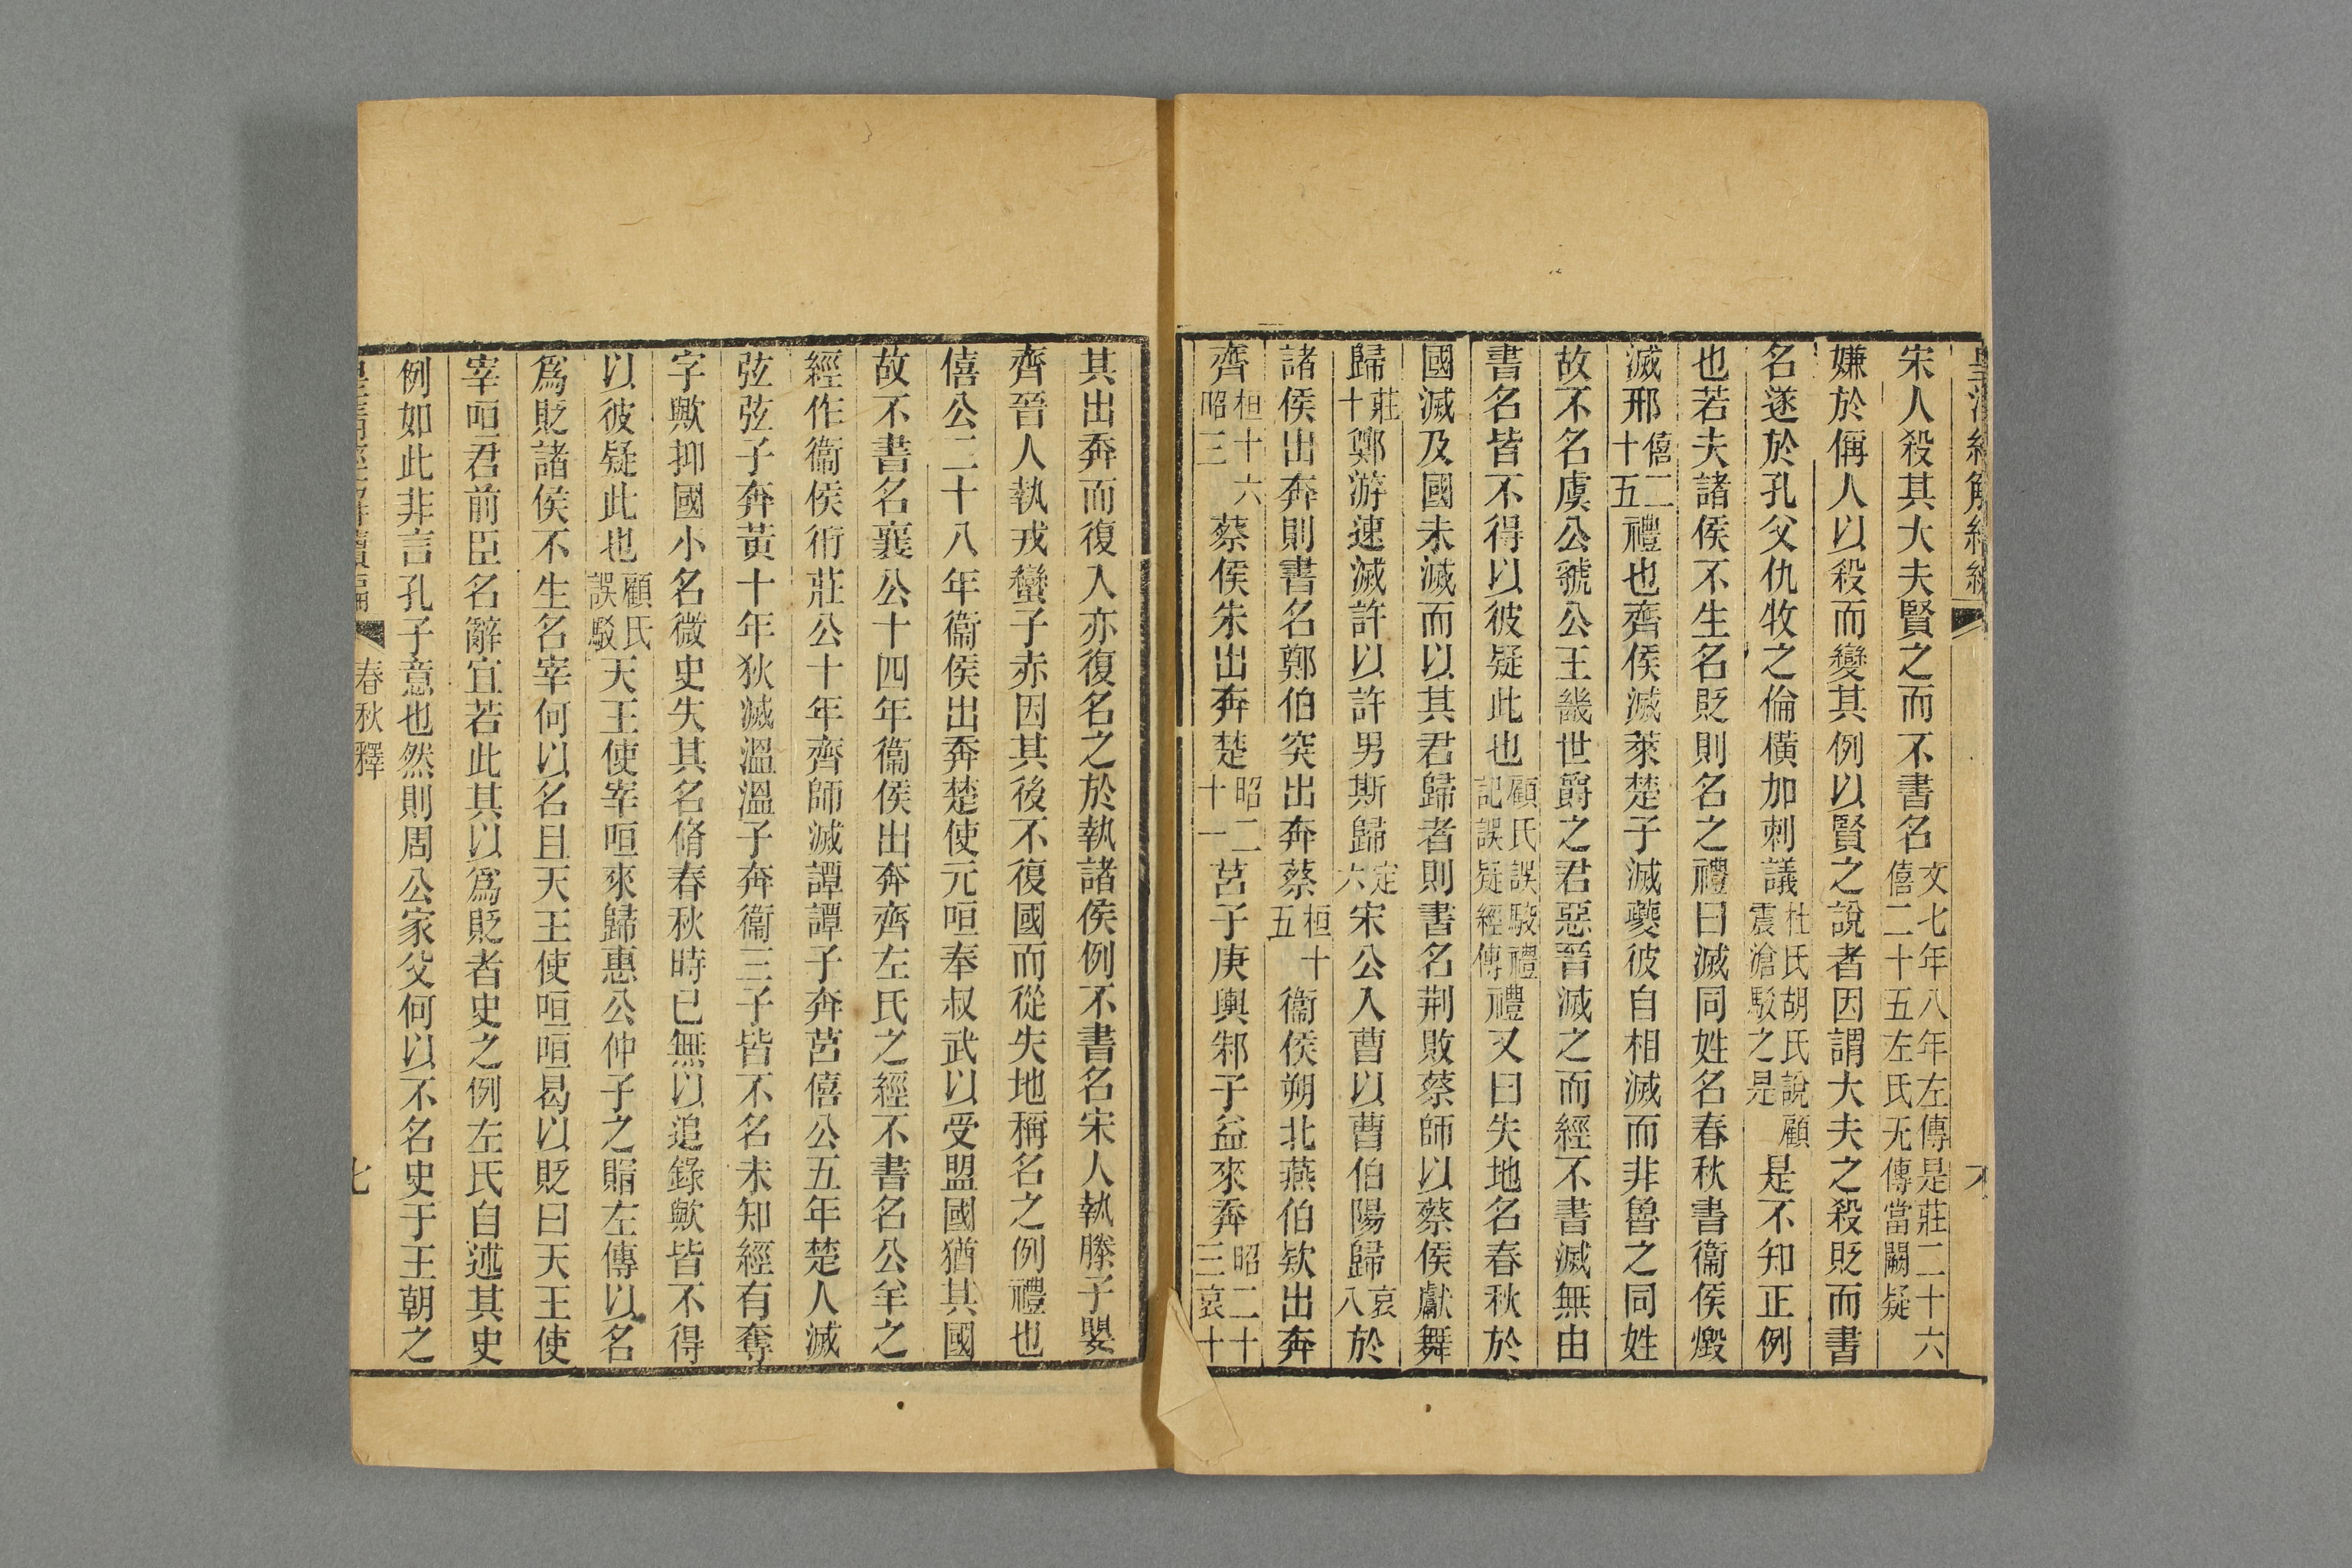 宋人殺其大夫賢之而不書名文七年八年左傳是莊二十六僖二十五左氏无傳當闕疑
嫌於偁人以殺而變其例以賢之說者因謂大夫之殺貶而書
名遂於孔父仇牧之倫橫加刺議杜氏胡氏說顧震滄駁之是是不知正例
也若夫諸侯不生名貶則名之禮曰滅同姓名春秋書衞侯燬
滅邢僖二十五禮也齊侯滅萊楚子滅夔彼自相滅而非魯之同姓
故不名虞公虢公王畿世爵之君惡晉滅之而經不書滅無由
書名皆不得以彼疑此也顧氏誤駁禮記誤疑經傳禮又曰失地名春秋於
國滅及國未滅而以其君歸者則書名荆敗蔡師以蔡侯獻舞
歸莊十鄭游速滅許以許男斯歸定六宋公入曹以曹伯陽歸哀八於
諸侯出奔則書名鄭伯突出奔蔡桓十五衞侯朔北燕伯欵出奔
齊桓十六昭三蔡侯朱出奔楚昭二十一莒子庚輿邾子益來奔昭二十三哀十
其出奔而復入亦復名之於執諸侯例不書名宋人執滕子嬰
齊晉人執戎蠻子赤因其後不復國而從失地稱名之例禮也
僖公二十八年衞侯出奔楚使元咺奉叔武以受盟國猶其國
故不書名襄公十四年衞侯出奔齊左氏之經不書名公羊之
經作衞侯衎莊公十年齊師滅譚譚子奔莒僖公五年楚人滅
弦弦子奔黃十年狄滅溫溫子奔衞三子皆不名未知經有奪
字歟抑國小名微史失其名脩春秋時已無以追錄歟皆不得
以彼疑此也顧氏誤駁天王使宰咺來歸惠公仲子之賵左傳以名
爲貶諸侯不生名宰何以名且天王使咺咺曷以貶曰天王使
宰咺君前臣名辭宜若此其以爲貶者史之例左氏自述其史
例如此非言孔子意也然則周公家父何以不名史于王朝之
春秋釋
七